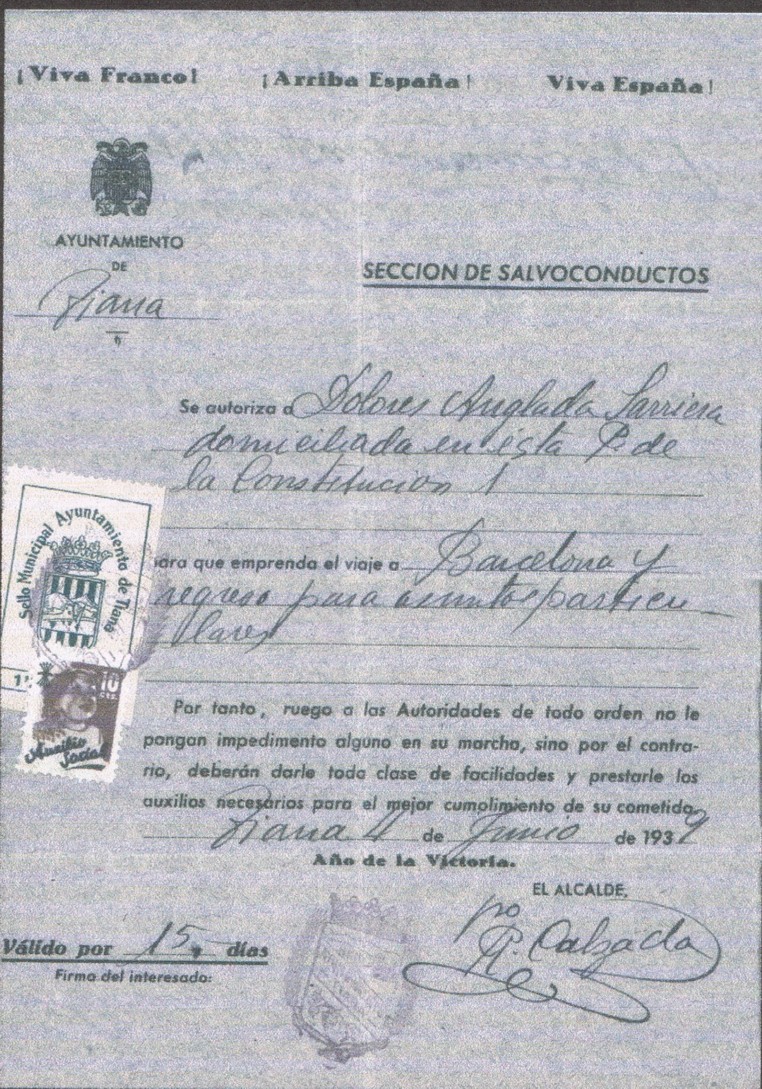 ¡Viva Franco! ¡Arriba España! Viva España!
AYUNTAMIENTO
DE
Tiana
SECCION DE SALVOCONDUCTOS
Se autoriza a Dolores Anglada Sarriera
domiciliada en ésta Pª de
la Constitucion 1
Sello Municipal Ayuntamiento de Tiana
para que emprenda el viaje a Barcelona y
regreso para asuntos particu-
lares
10
CTS.
Auxilio
Social
Por tanto, ruego a las Autoridades de todo orden no le
pongan impedimento alguno en su marcha, sino por el contra-
rio, deberán darle toda clase de facilidades y prestarle los
auxilios necesarios para el mejor cumplimiento de su cometido.
Tiana 4 de Junio de 1939
Año de la Victoria.
EL ALCALDE,
po
R. Calzada
Válido por 15 días
Firma del interesado: